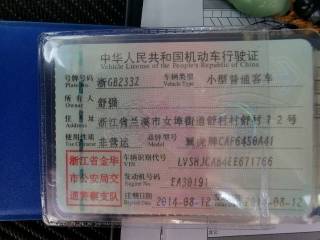 中华人民共和国机动车行驶证
Vehicle License of the People's Republic of China
号牌号码 Plate No. 浙GB2332 车辆类型 Vehicle Type 小型普通客车
所有人 Owner 舒强
住址 Address 浙江省兰溪市女埠街道舒村村舒村12号
使用性质 Use Character 非营运 品牌型号 Model CAF6450A41
浙江省金华
市公安局交
通警察支队
车辆识别代号 VIN LVSHJCAB4EE671766
发动机号码 Engine No. EA30191
注册日期 Register Date 2014-08-12 Issue Date 2014-08-12